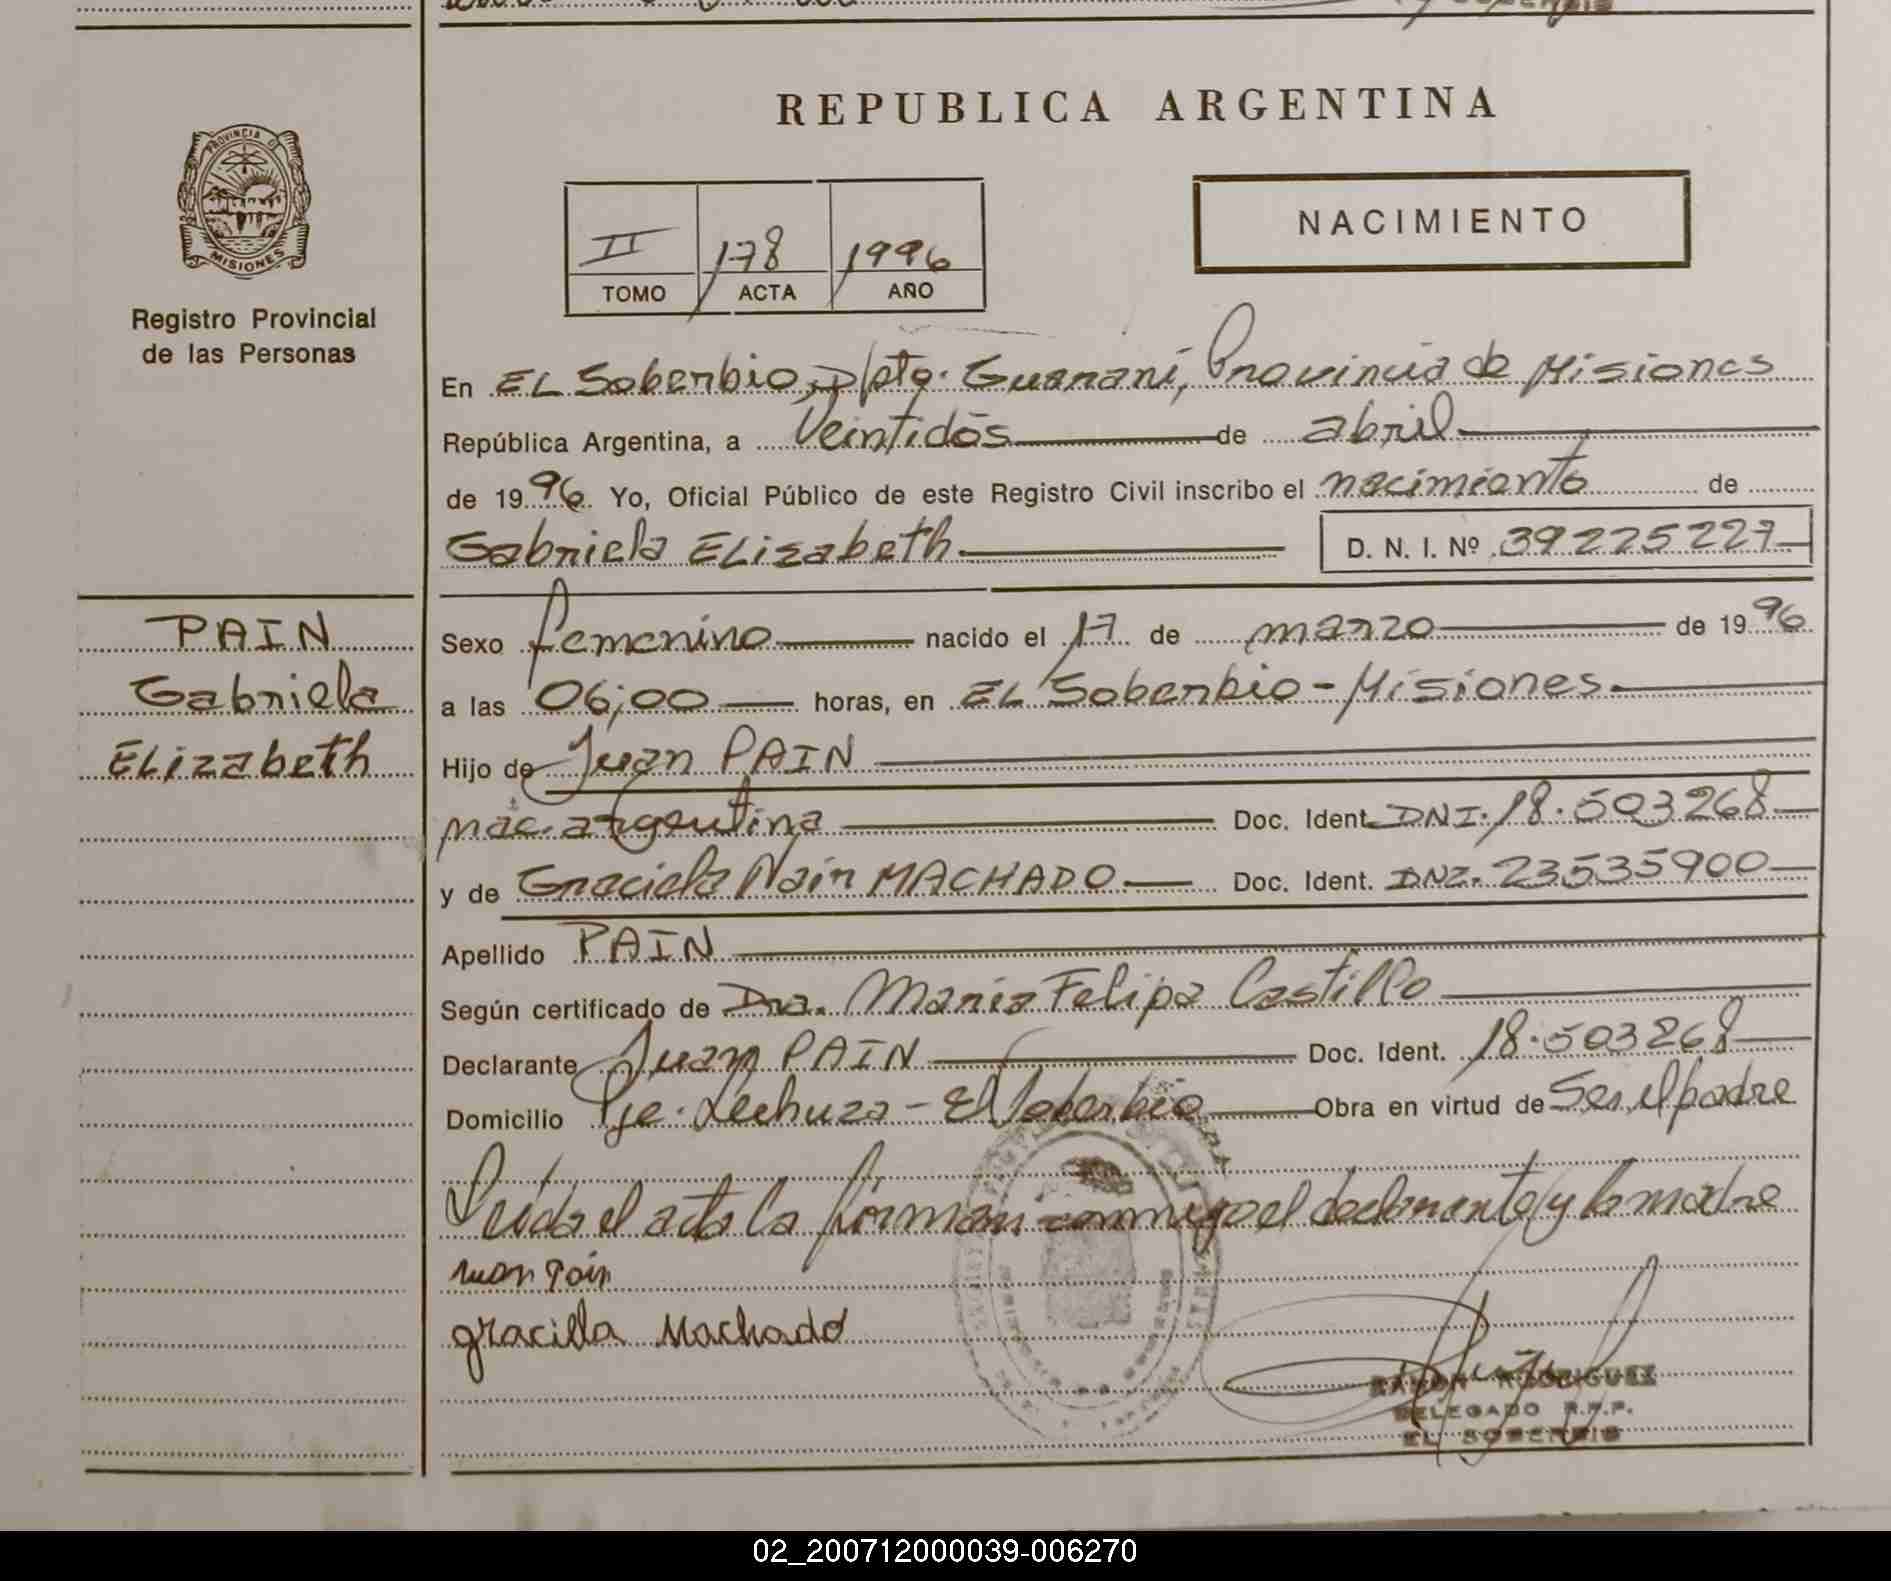 REPUBLICA ARGENTINA
PROVINCIA DE
MISIONES
Registro Provincial
de las Personas
II 178 1996
TOMO ACTA AÑO
NACIMIENTO
En EL Soberbio, Dpto. Guaraní, Provincia de Misiones
República Argentina, a Veintidós de abril
de 1996 Yo, Oficial Público de este Registro Civil inscribo el nacimiento de
Gabriela ELizabeth D. N. I. Nº 39225227
PAIN
Gabriela
ELizabeth
Sexo femenino nacido el 17 de marzo de 1996
a las 06,00 horas, en EL Soberbio - Misiones
Hijo de Juan PAIN
nac. argentina Doc. Ident. DNI. 18.503268
y de Graciela Nair MACHADO Doc. Ident. DNI. 23535900
Apellido PAIN
Según certificado de Dra. María Felipa Castillo
Declarante Juan PAIN Doc. Ident. 18.503268
Domicilio Pje. Lechuza - El Soberbio Obra en virtud de Ser el padre
Leída el acta la firman conmigo el declarante y la madre
Juan Pain
graciela Machado
RAMON RODRIGUEZ
DELEGADO R.P.P.
EL SOBERBIO
02_200712000039-006270